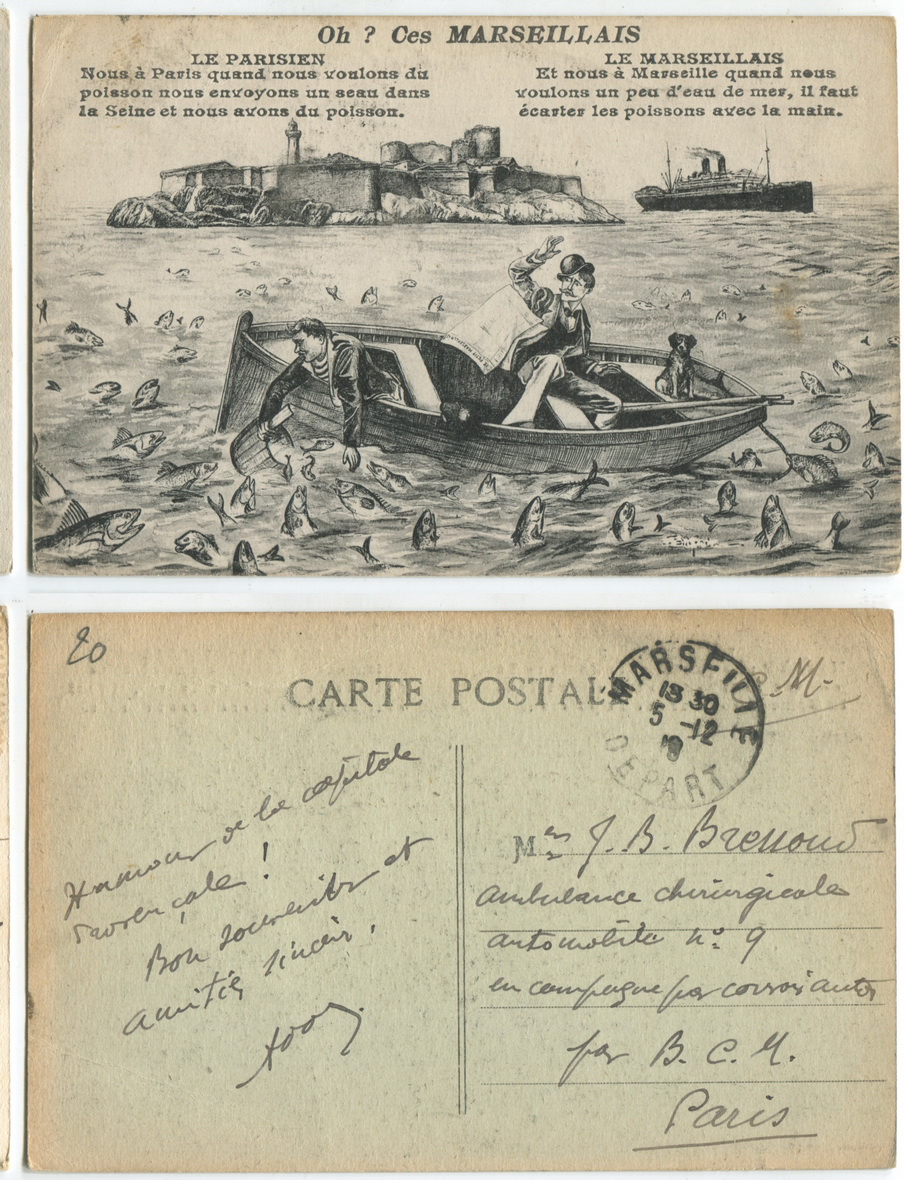 Oh ? Ces MARSEILLAIS
LE PARISIEN
Nous à Paris quand nous voulons du
poisson nous envoyons un seau dans
la Seine et nous avons du poisson.
LE MARSEILLAIS
Et nous à Marseille quand nous
voulons un peu d'eau de mer, il faut
écarter les poissons avec la main.
20
CARTE POSTALE
MARSEILLE
18 30
5 -12
DEPART
. M-
Humour de la capitale
Provençale !
Bon souvenir et
amitiés
Mr J. B. Bressoud
ambulance chirurgicale
automobile n° 9
en campagne par
par B. C. M.
Paris